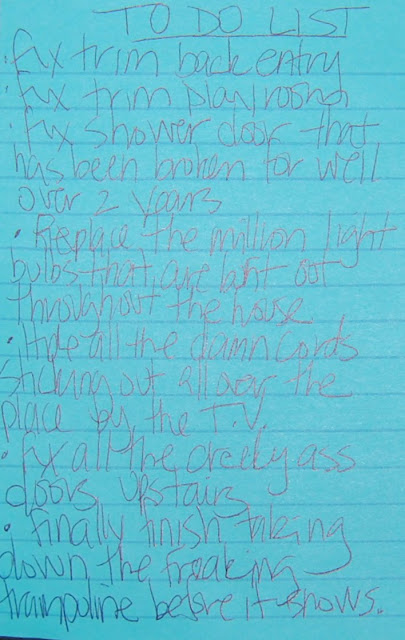 TO DO LIST
· fix trim back entry
· fix trim playroom
· fix shower door that
has been broken for well
over 2 years
· Replace the million light
bulbs that are burnt out
throughout the house
· Hide all the damn cords
sticking out all over the
place by the T.V.
· fix all the creeky ass
doors upstairs
· finally finish taking
down the freaking
trampoline before it snows.